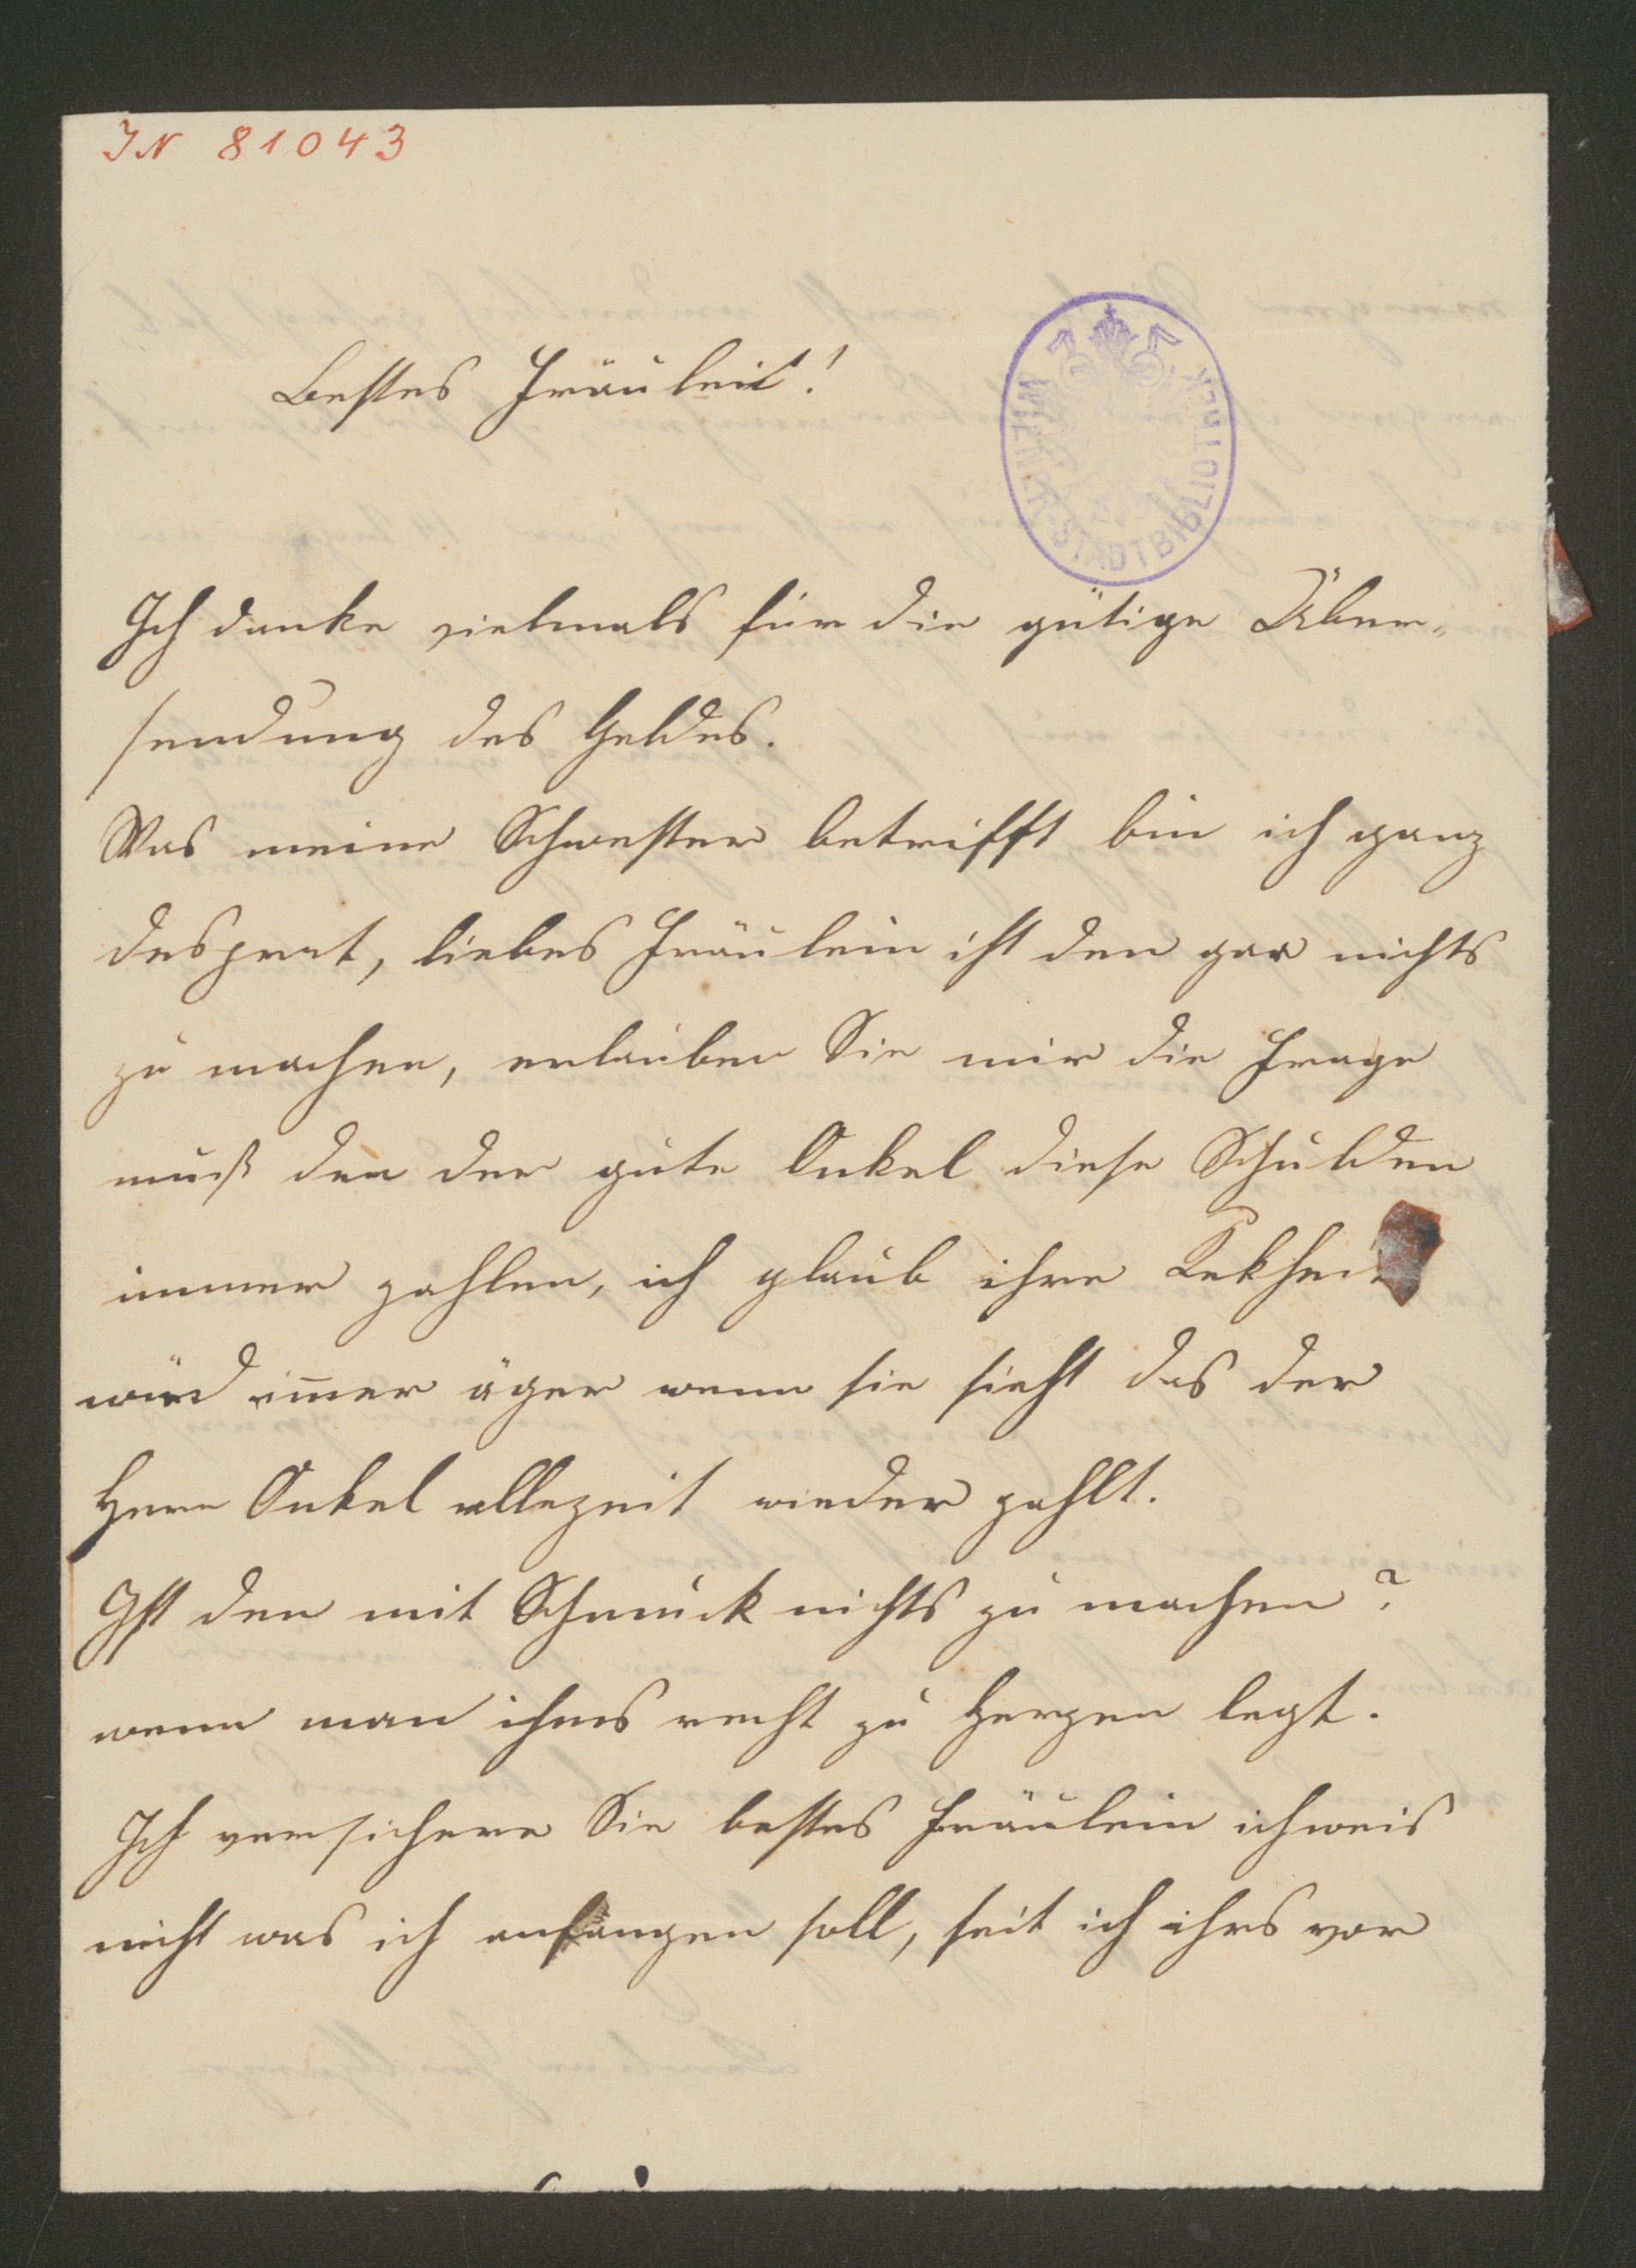 IN 81043
WIENER STADTBIBLIOTHEK
Bestes Fräulein!
Ich danke vielmals für die gütige Über„
sendung des Geldes.
Was meine Schwester betrifft bin ich ganz
desprat, liebes Fräulein ist den gar nichts
zu machen, erlauben Sie mir die Frage
muß den der gute Onkel diese Schulden
immer zahlen, ich glaub ihre Kekheit
wird im̄er äger wenn sie sieht das der
Herr Onkel allezeit wieder zahlt.
Ist den mit Schmuck nichts zu machen?
wenn man ihms recht zu Herzen legt.
Ich versichere Sie bestes Fräulein ich weis
nicht was ich anfangen soll, seit ich ihrs vor